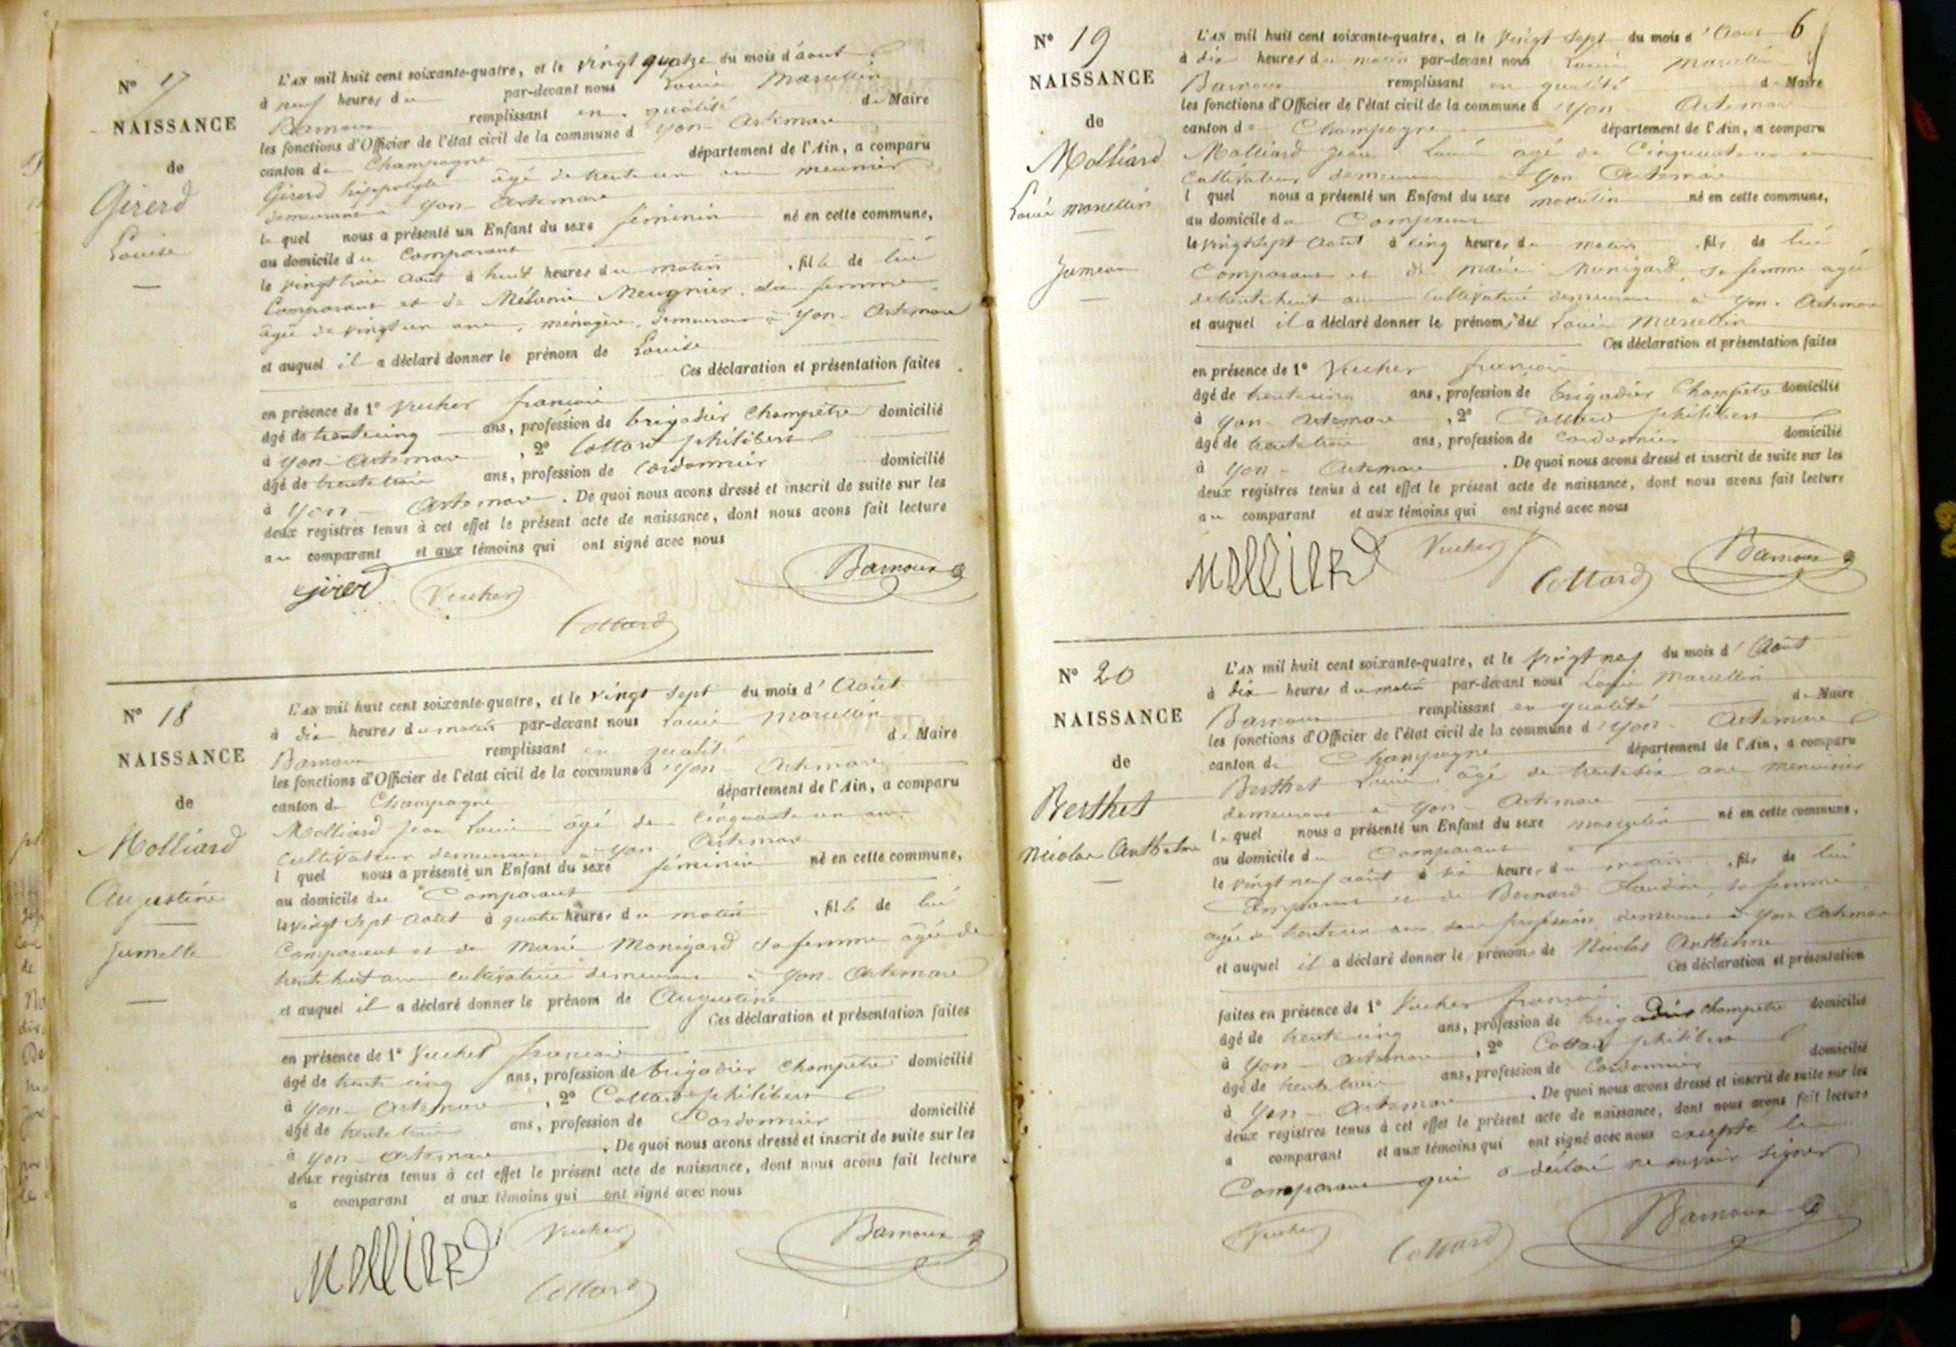 N° 17
NAISSANCE
de
Girerd
Louise
L'AN mil huit cent soixante-quatre, et le vingt quatre du mois d'aout
à neuf heures du par-devant nous Louis Marcellin
Barnoux remplissant en qualité de Maire
les fonctions d'Officier de l'état civil de la commune d'Yon-Artemare
canton de Champagne département de l'Ain, a comparu
Girerd hippolyte âgé de trente un ans meunier
demeurant à Yon-Artemare
lequel nous a présenté un Enfant du sexe féminin né en cette commune,
au domicile du Comparant
le vingt trois aout à huit heures du matin, fille de lui
Comparant et de Mélanie Meugnier sa femme
âgée de vingt un ans, ménagère, demeurant à Yon-Artemare
et auquel il a déclaré donner le prénom de Louise
Ces déclaration et présentation faites
en présence de 1° Vucher françois
âgé de trente cinq ans, profession de brigadier Champêtre domicilié
à Yon-Artemare, 2° Cottard philibert
âgé de trente trois ans, profession de Cordonnier domicilié
à Yon-Artemare. De quoi nous avons dressé et inscrit de suite sur les
deux registres tenus à cet effet le présent acte de naissance, dont nous avons fait lecture
au comparant et aux témoins qui ont signé avec nous
girerd Vucher Barnoux
Cottard
N° 18
NAISSANCE
de
Molliard
Augustine
jumelle
L'AN mil huit cent soixante-quatre, et le vingt sept du mois d'Août
à dix heures du matin par-devant nous Louis Marcellin
Barnoux remplissant en qualité de Maire
les fonctions d'Officier de l'état civil de la commune d'Yon-Artemare
canton de Champagne département de l'Ain, a comparu
Molliard Jean Louis âgé de cinquante un ans
Cultivateur demeurant à Yon Artemare
l quel nous a présenté un Enfant du sexe féminin né en cette commune,
au domicile du Comparant
le vingt sept aout à quatre heures du matin, fille de lui
Comparant et de Marie Monigard sa femme âgée de
trente huit ans cultivatrice demeurant à Yon-Artemare
et auquel il a déclaré donner le prénom de Augustine
Ces déclaration et présentation faites
en présence de 1° Vucher françois
âgé de trente cinq ans, profession de brigadier Champêtre domicilié
à Yon-Artemare, 2° Cottard philibert
âgé de trente trois ans, profession de Cordonnier domicilié
à Yon-Artemare. De quoi nous avons dressé et inscrit de suite sur les
deux registres tenus à cet effet le présent acte de naissance, dont nous avons fait lecture
a comparant et aux témoins qui ont signé avec nous
Molliard Vucher Barnoux
Cottard
6
N° 19
NAISSANCE
de
Molliard
Louis Marcellin
jumeau
L'AN mil huit cent soixante-quatre, et le vingt sept du mois d'Aout
à dix heures du matin par-devant nous Louis Marcellin
Barnoux remplissant en qualité de Maire
les fonctions d'Officier de l'état civil de la commune d'Yon-Artemare
canton de Champagne département de l'Ain, a comparu
Molliard Jean Louis âgé de Cinquante un ans
Cultivateur demeurant à Yon Artemare
l quel nous a présenté un Enfant du sexe masculin né en cette commune,
au domicile du Comparant
le vingt sept Aout à cinq heures du matin, fils de lui
Comparant et de Marie Monigard, sa femme agée
de trente huit ans Cultivatrice demeurant à Yon-Artemare
et auquel il a déclaré donner le prénoms de Louis Marcellin
Ces déclaration et présentation faites
en présence de 1° Vucher françois
âgé de trente cinq ans, profession de brigadier Champêtre domicilié
à Yon-Artemare, 2° Cottard philibert
âgé de trente trois ans, profession de Cordonnier domicilié
à Yon-Artemare. De quoi nous avons dressé et inscrit de suite sur les
deux registres tenus à cet effet le présent acte de naissance, dont nous avons fait lecture
au comparant et aux témoins qui ont signé avec nous
Molliard Vucher Cottard Barnoux
N° 20
NAISSANCE
de
Berthet
Nicolas Anthelme
L'AN mil huit cent soixante-quatre, et le vingt neuf du mois d'Août
à dix heures du matin par-devant nous Louis Marcellin
Barnoux remplissant en qualité de Maire
les fonctions d'Officier de l'état civil de la commune d'Yon-Artemare
canton de Champagne département de l'Ain, a comparu
Berthet Louis âgé de trente six ans menuisier
demeurant à Yon-Artemare
lequel nous a présenté un Enfant du sexe masculin né en cette commune,
au domicile du Comparant
le vingt neuf août à six heures du matin, fils de lui
Comparant et de Bernard Claudine sa femme
agée de trente un ans, sans profession, demeurant à Yon Artemare
et auquel il a déclaré donner le prénoms de Nicolas Anthelme
Ces déclaration et présentation
faites en présence de 1° Vucher françois
âgé de trente cinq ans, profession de brigadier champêtre domicilié
à Yon-Artemare, 2° Cottard philibert
âgé de trente trois ans, profession de Cordonnier domicilié
à Yon-Artemare. De quoi nous avons dressé et inscrit de suite sur les
deux registres tenus à cet effet le présent acte de naissance, dont nous avons fait lecture
a comparant et aux témoins qui ont signé avec nous excepté le
Comparant qui a déclaré ne savoir signer
Vucher Cottard Barnoux